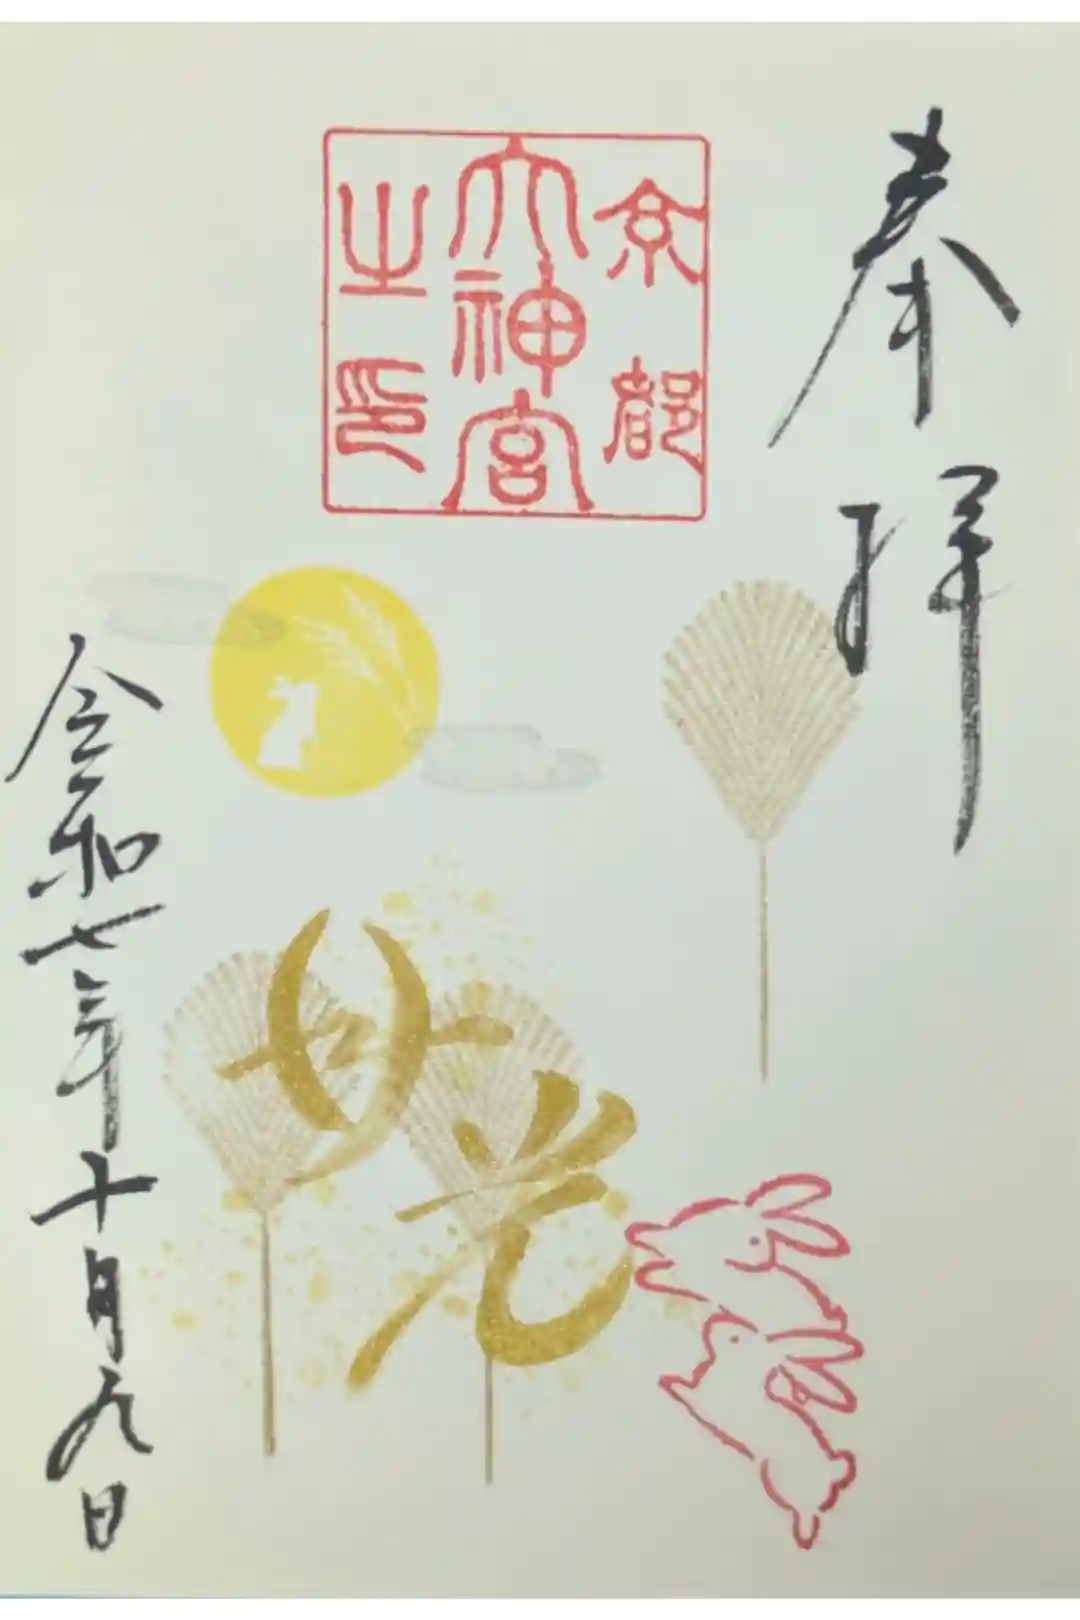 奉拝
京都
大神宮
之印
光
令和七年十月九日